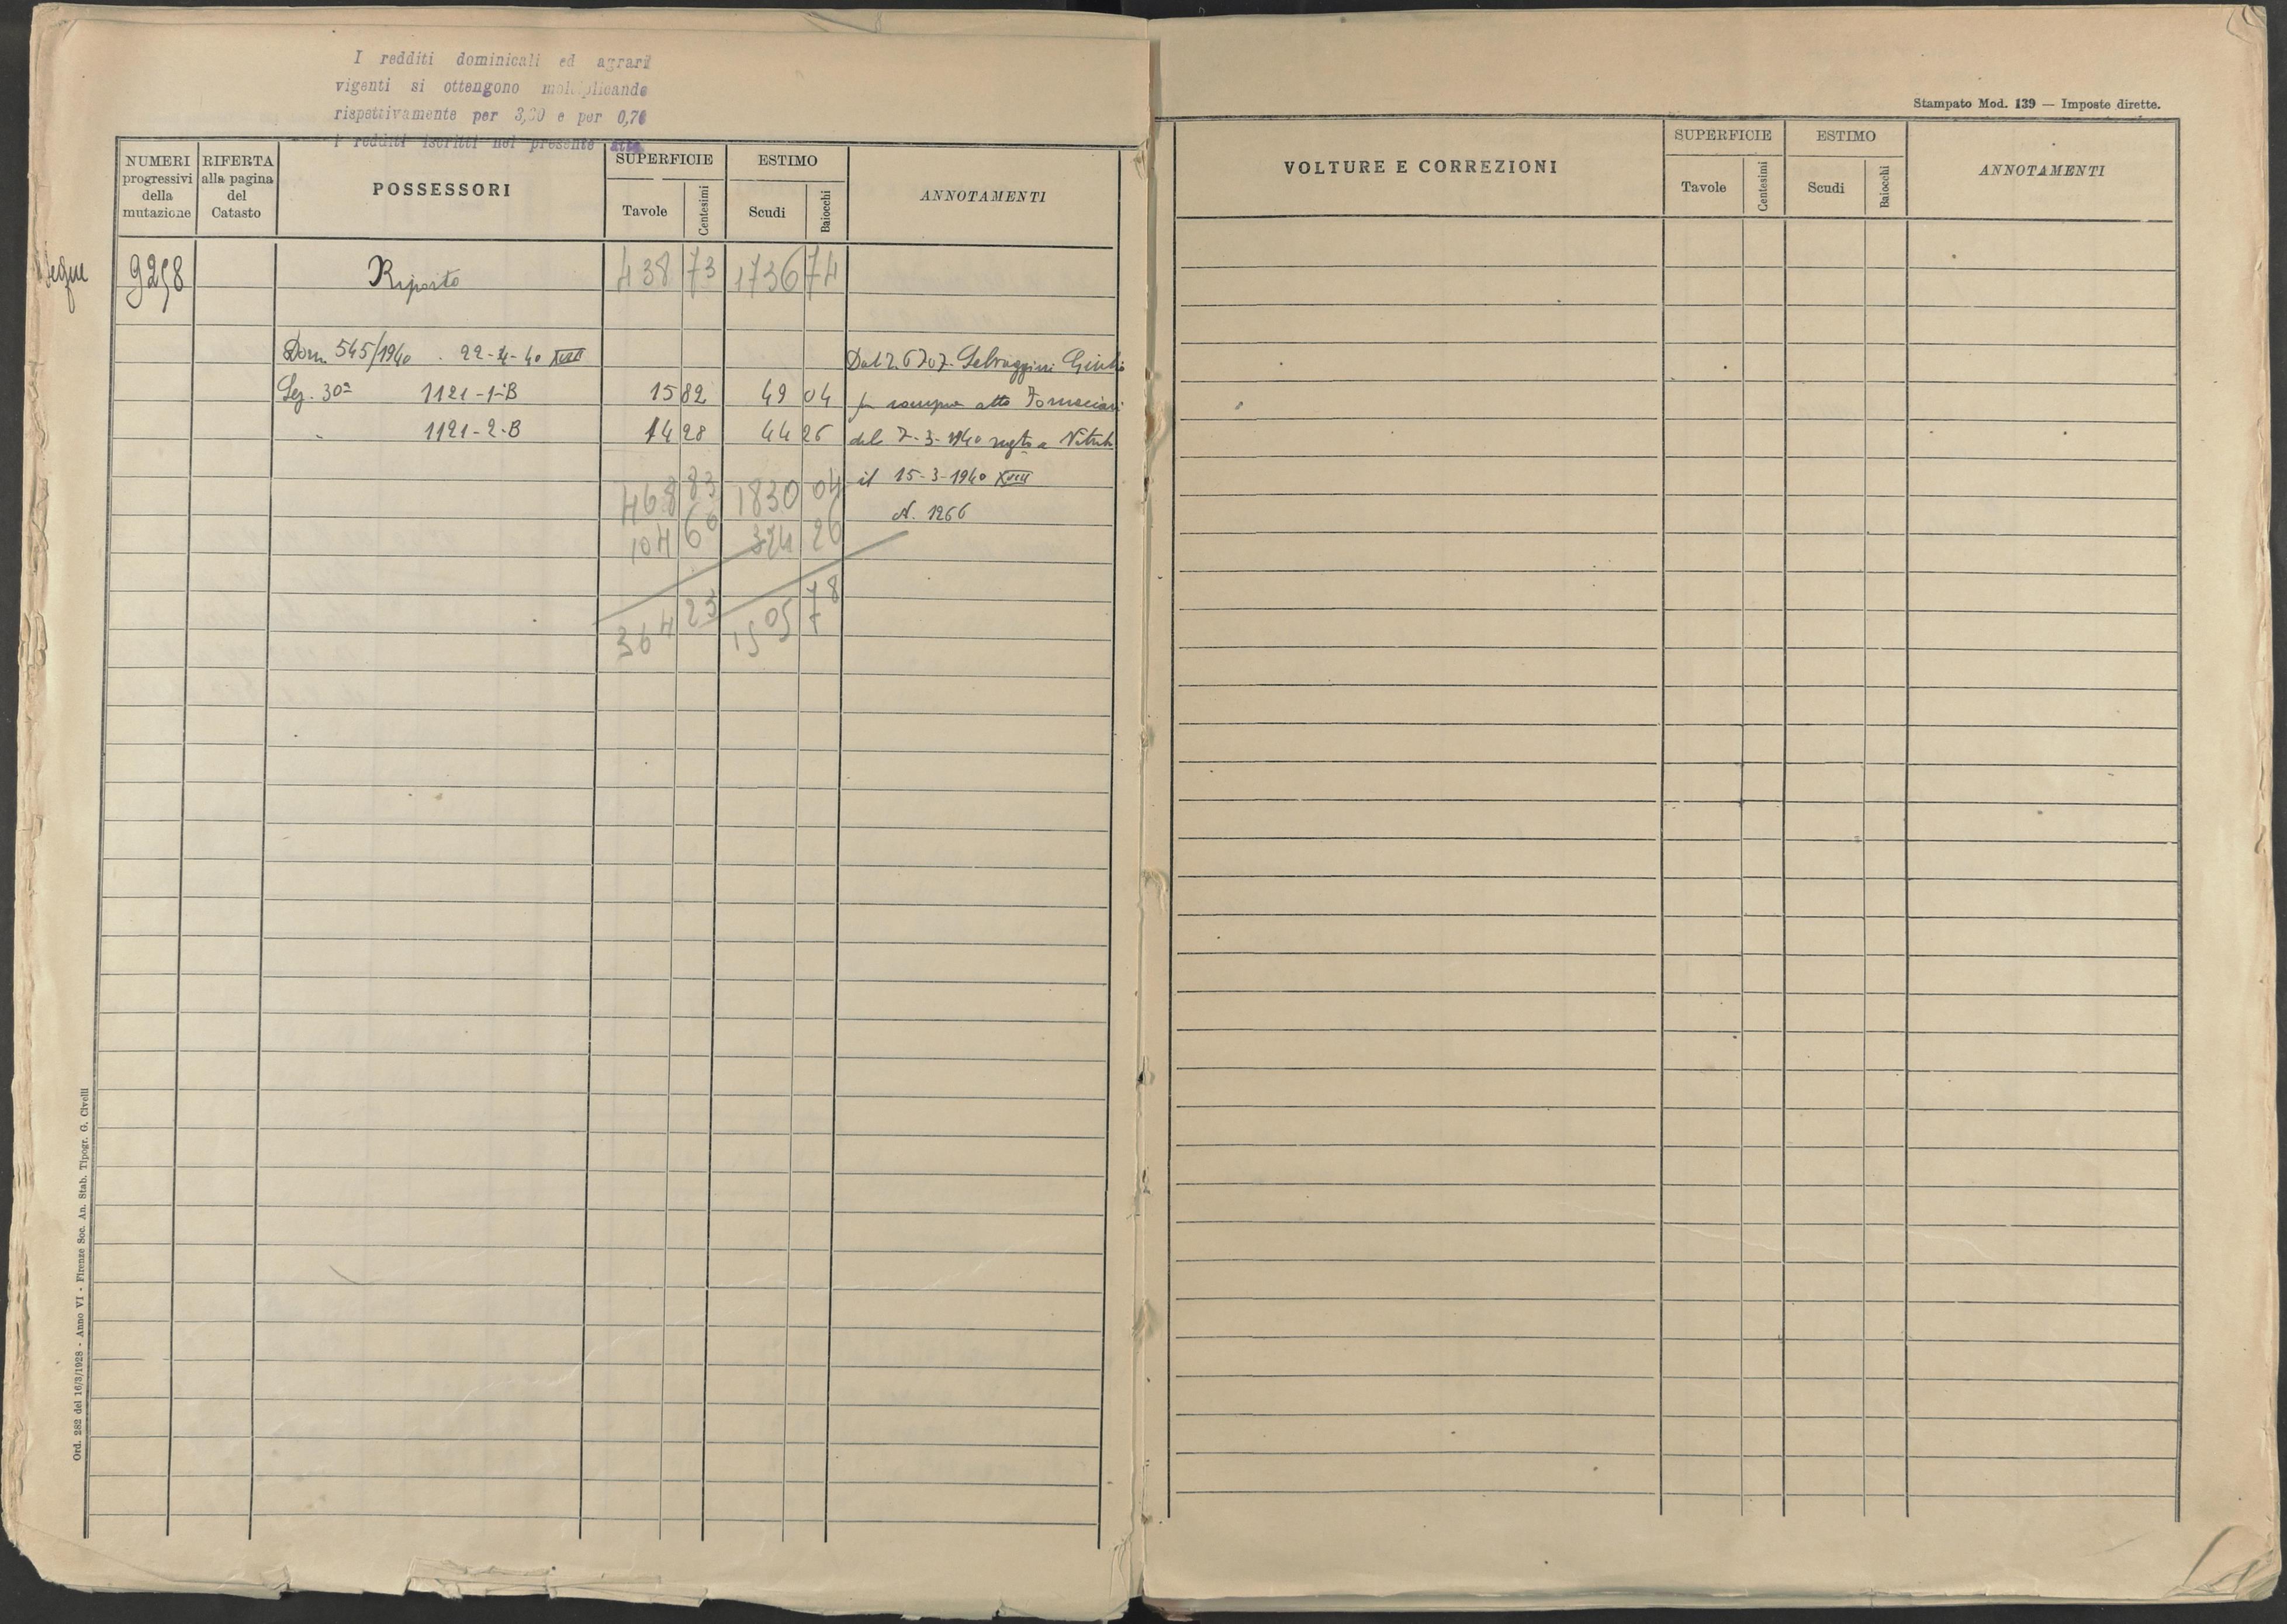 I redditi dominicali ed agrari
vigenti si ottengono moltiplicando
rispettivamente per 3,00 e per 0,70
i redditi iscritti nel presente atto.
NUMERI progressivi della mutazione
RIFERTA alla pagina del Catasto
POSSESSORI
SUPERFICIE
Tavole
Centesimi
ESTIMO
Scudi
Baiocchi
ANNOTAMENTI
Segue 9258 Riporto 438 73 1736 74
Dom. 545/1940 . 22-4-40 XVIII
Sez. 30ª 1121-1-B 15 82 49 04
1121-2-B 14 28 44 26
468 83 1830 04
104 60 324 26
364 23 1505 78
Selvaggini Giulio
atto
del 7-3-1940
il 15-3-1940 XVIII
N. 1266
Ord. 282 del 16/3/1928 - Anno VI - Firenze Soc. An. Stab. Tipogr. G. Civelli
Stampato Mod. 139 — Imposte dirette.
VOLTURE E CORREZIONI
SUPERFICIE
Tavole
Centesimi
ESTIMO
Scudi
Baiocchi
ANNOTAMENTI